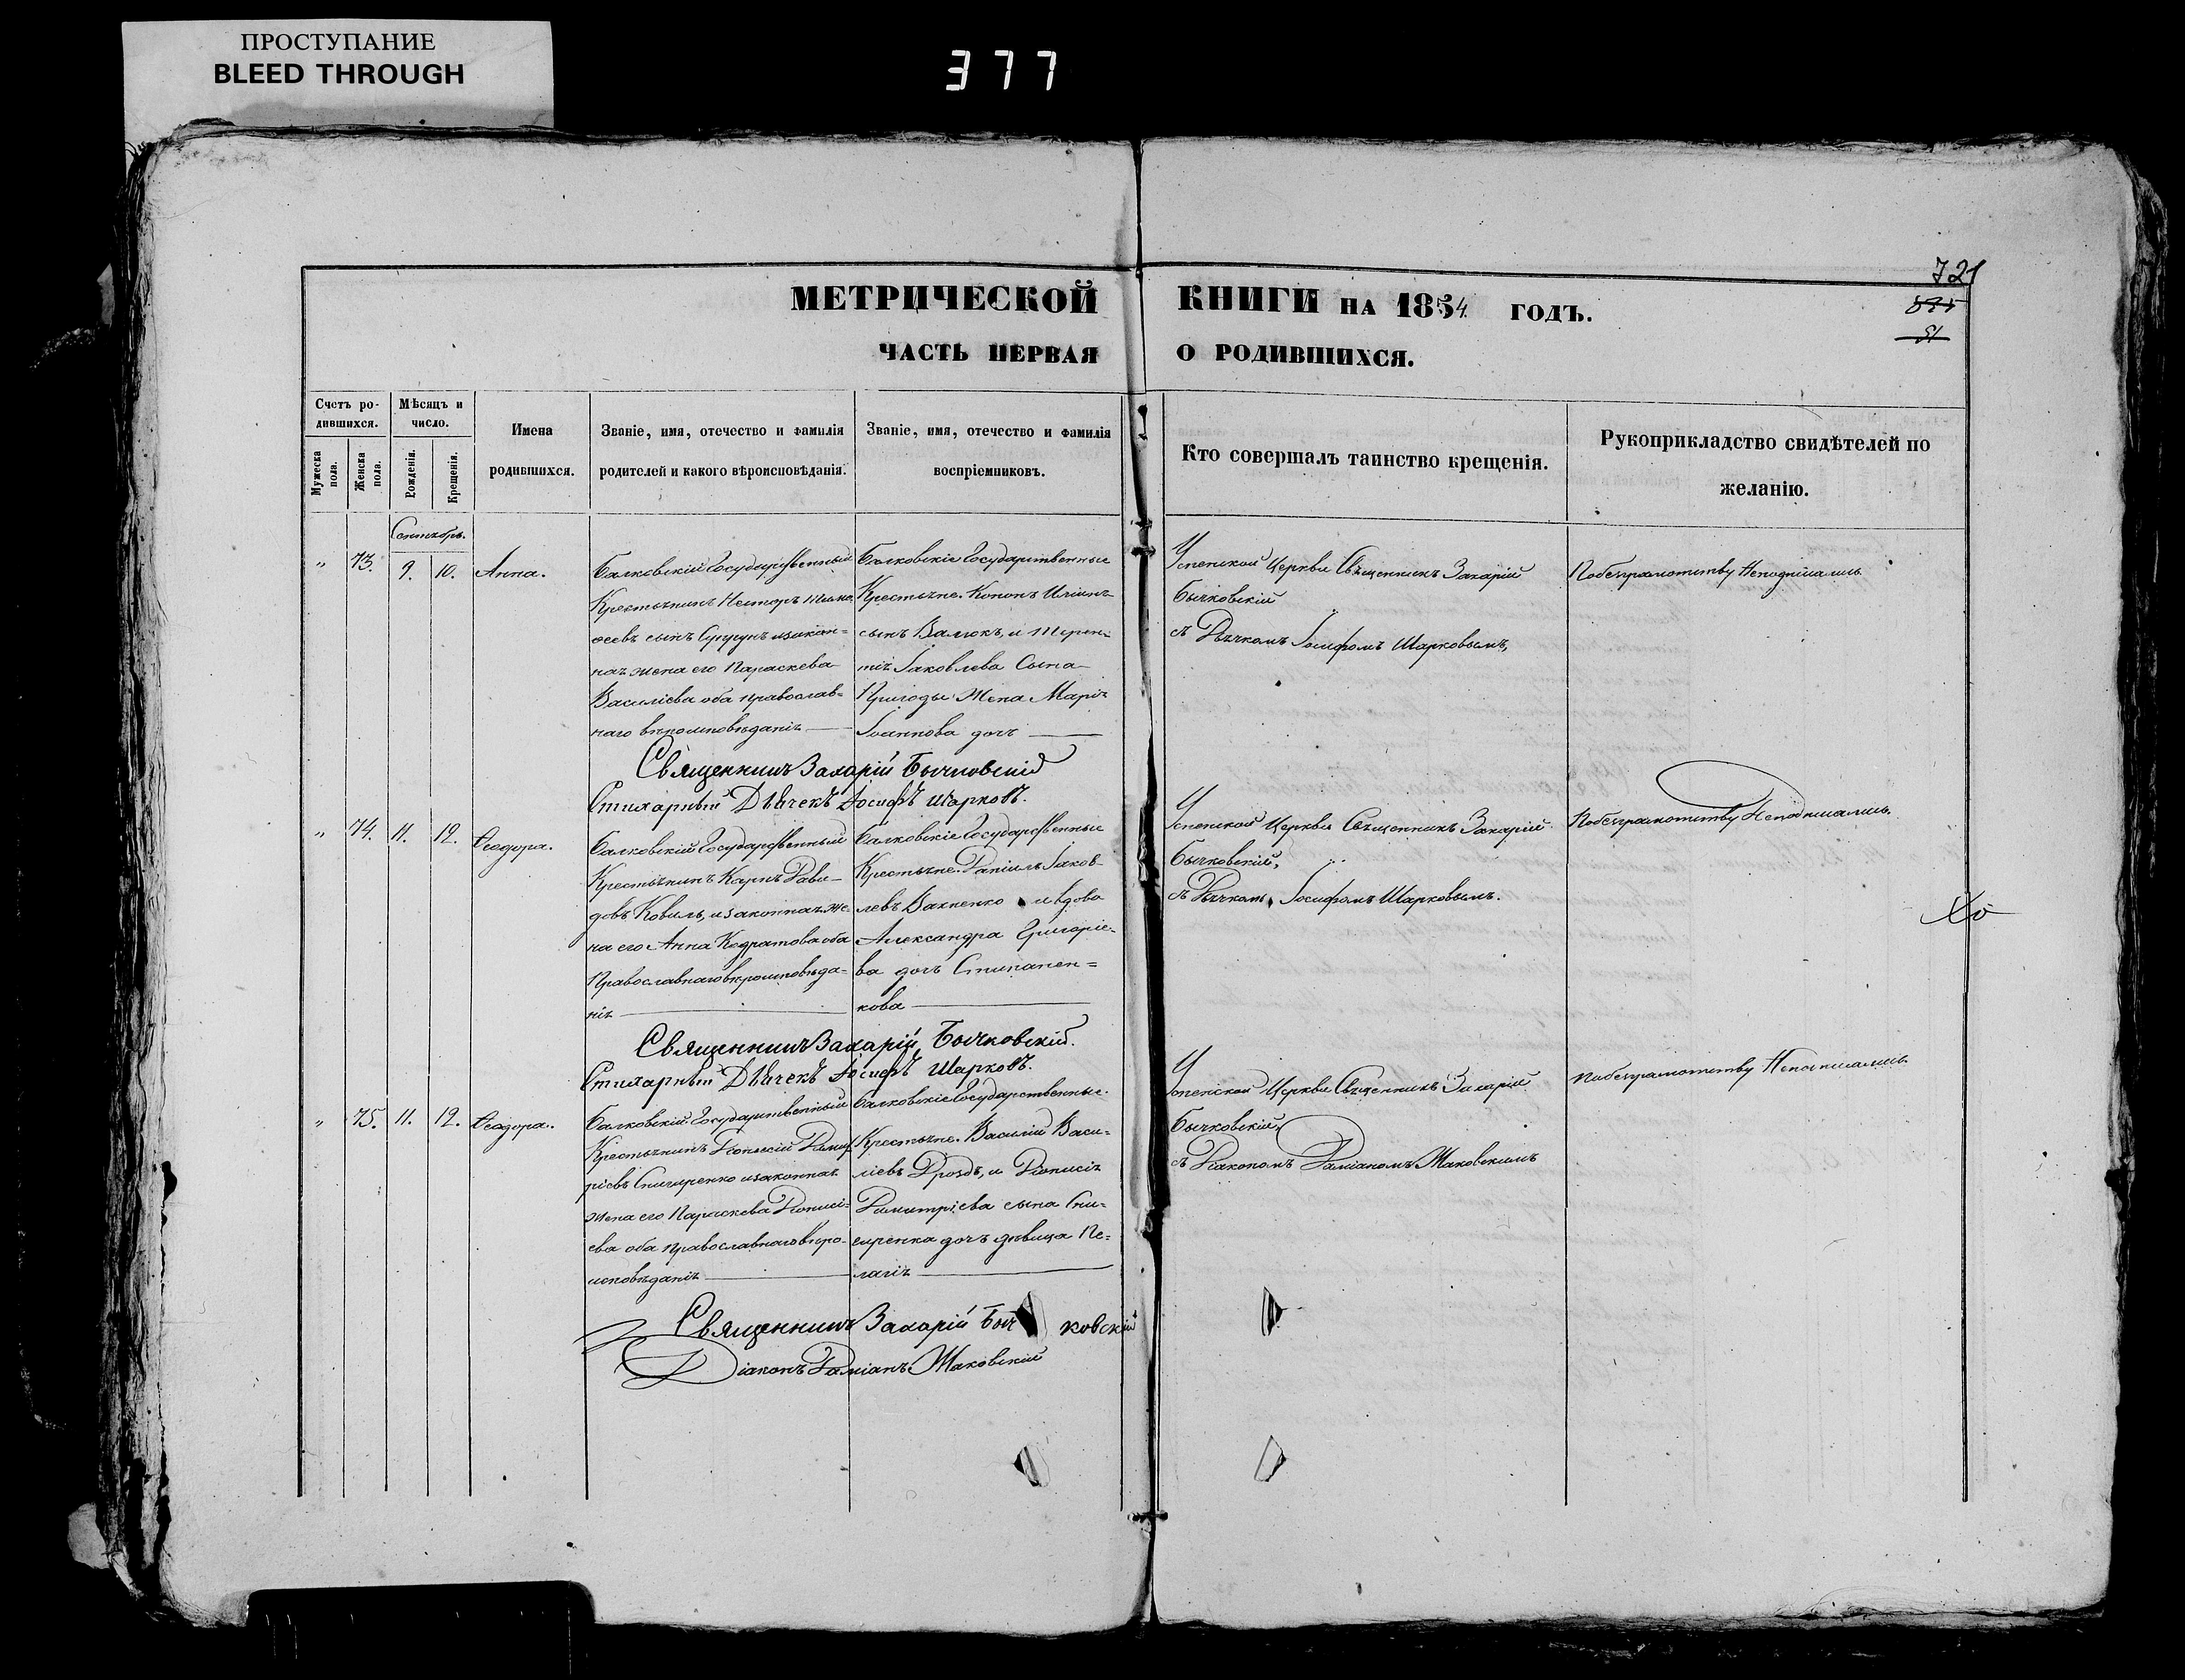 ПРОСТУПАНИЕ
BLEED THROUGH
377
721
МЕТРИЧЕСКОЙ КНИГИ НА 1854 ГОДЪ.
51
ЧАСТЬ ПЕРВАЯ О РОДИВШИХСЯ.
Счетъ ро-
дившихся.
Мужеска пола.
Женска пола.
Мѣсяцъ и
число.
Рожденія.
Крещенія.
Имена
родившихся.
Званіе, имя, отечество и фамилія
родителей и какого вѣроисповѣданія.
Званіе, имя, отечество и фамилія
воспріемниковъ.
Кто совершалъ таинство крещенія.
Рукоприкладство свидѣтелей по
желанію.
Сентябрь.
„ 73. 9. 10. Анна.
Балковскій Государственный
Крестьянинъ Несторъ Тимо
ѳеевъ сынъ закон=
ная жена его Параскева
Василіева оба православ=
наго вѣроисповѣданія
Балковскіе Государственные
Крестьяне. Кононъ
сынъ Валюкъ, и Терен=
тія Іаковлева Сына
Пригоды Жена Марія
Іоаннова дочь
Успенской Церкви Священникъ Захарій
Бычковскій
съ Дьячкомъ Іосифомъ Шарковымъ,
Побезграмотству Неподписались
Священникъ Захарій Бычковскій
Стихарный Дьячекъ Іосифъ Шарковъ.
„ 74. 11. 12. Ѳеодора.
Балковскій Государственный
Крестьянинъ Карпъ Дави=
довъ Ковиль, изаконная же=
на его Анна Кодратова оба
Православнаго вѣроисповѣда=
нія
Балковскіе Государственные
Крестьяне. Даніилъ Іаков=
левъ Вахненко и вдова
Александра Григоріе=
ва дочь Стипанен=
кова
Успенской Церкви Священникъ Захарій
Бычковскій,
съ Дьячкомъ Іосифомъ Шарковымъ.
Побезграмотству Неподписались.
Священникъ Захарій Бычковскій.
Стихарный Дьячекъ Іосифъ Шарковъ.
„ 75. 11. 12. Ѳеодора.
Балковскій Государственный
Крестьянинъ Димит
ріевъ изаконная
жена его Параскева Діонисі=
ева оба православнаго вѣро=
исповѣданія
Балковскіе Государственные.
Крестьяне. Василій Васи=
ліевъ Дроздъ, и Діонисія
Димитріева сына Сни=
дочь дѣвица Пе=
лагія
Успенской Церкви Священникъ Захарій
Бычковскій,
съ Діакономъ Даміаномъ Жаковскимъ
Побезграмотству Неподписались.
Священникъ Захарій Бычковскій
Діаконъ Даміанъ Жаковскій